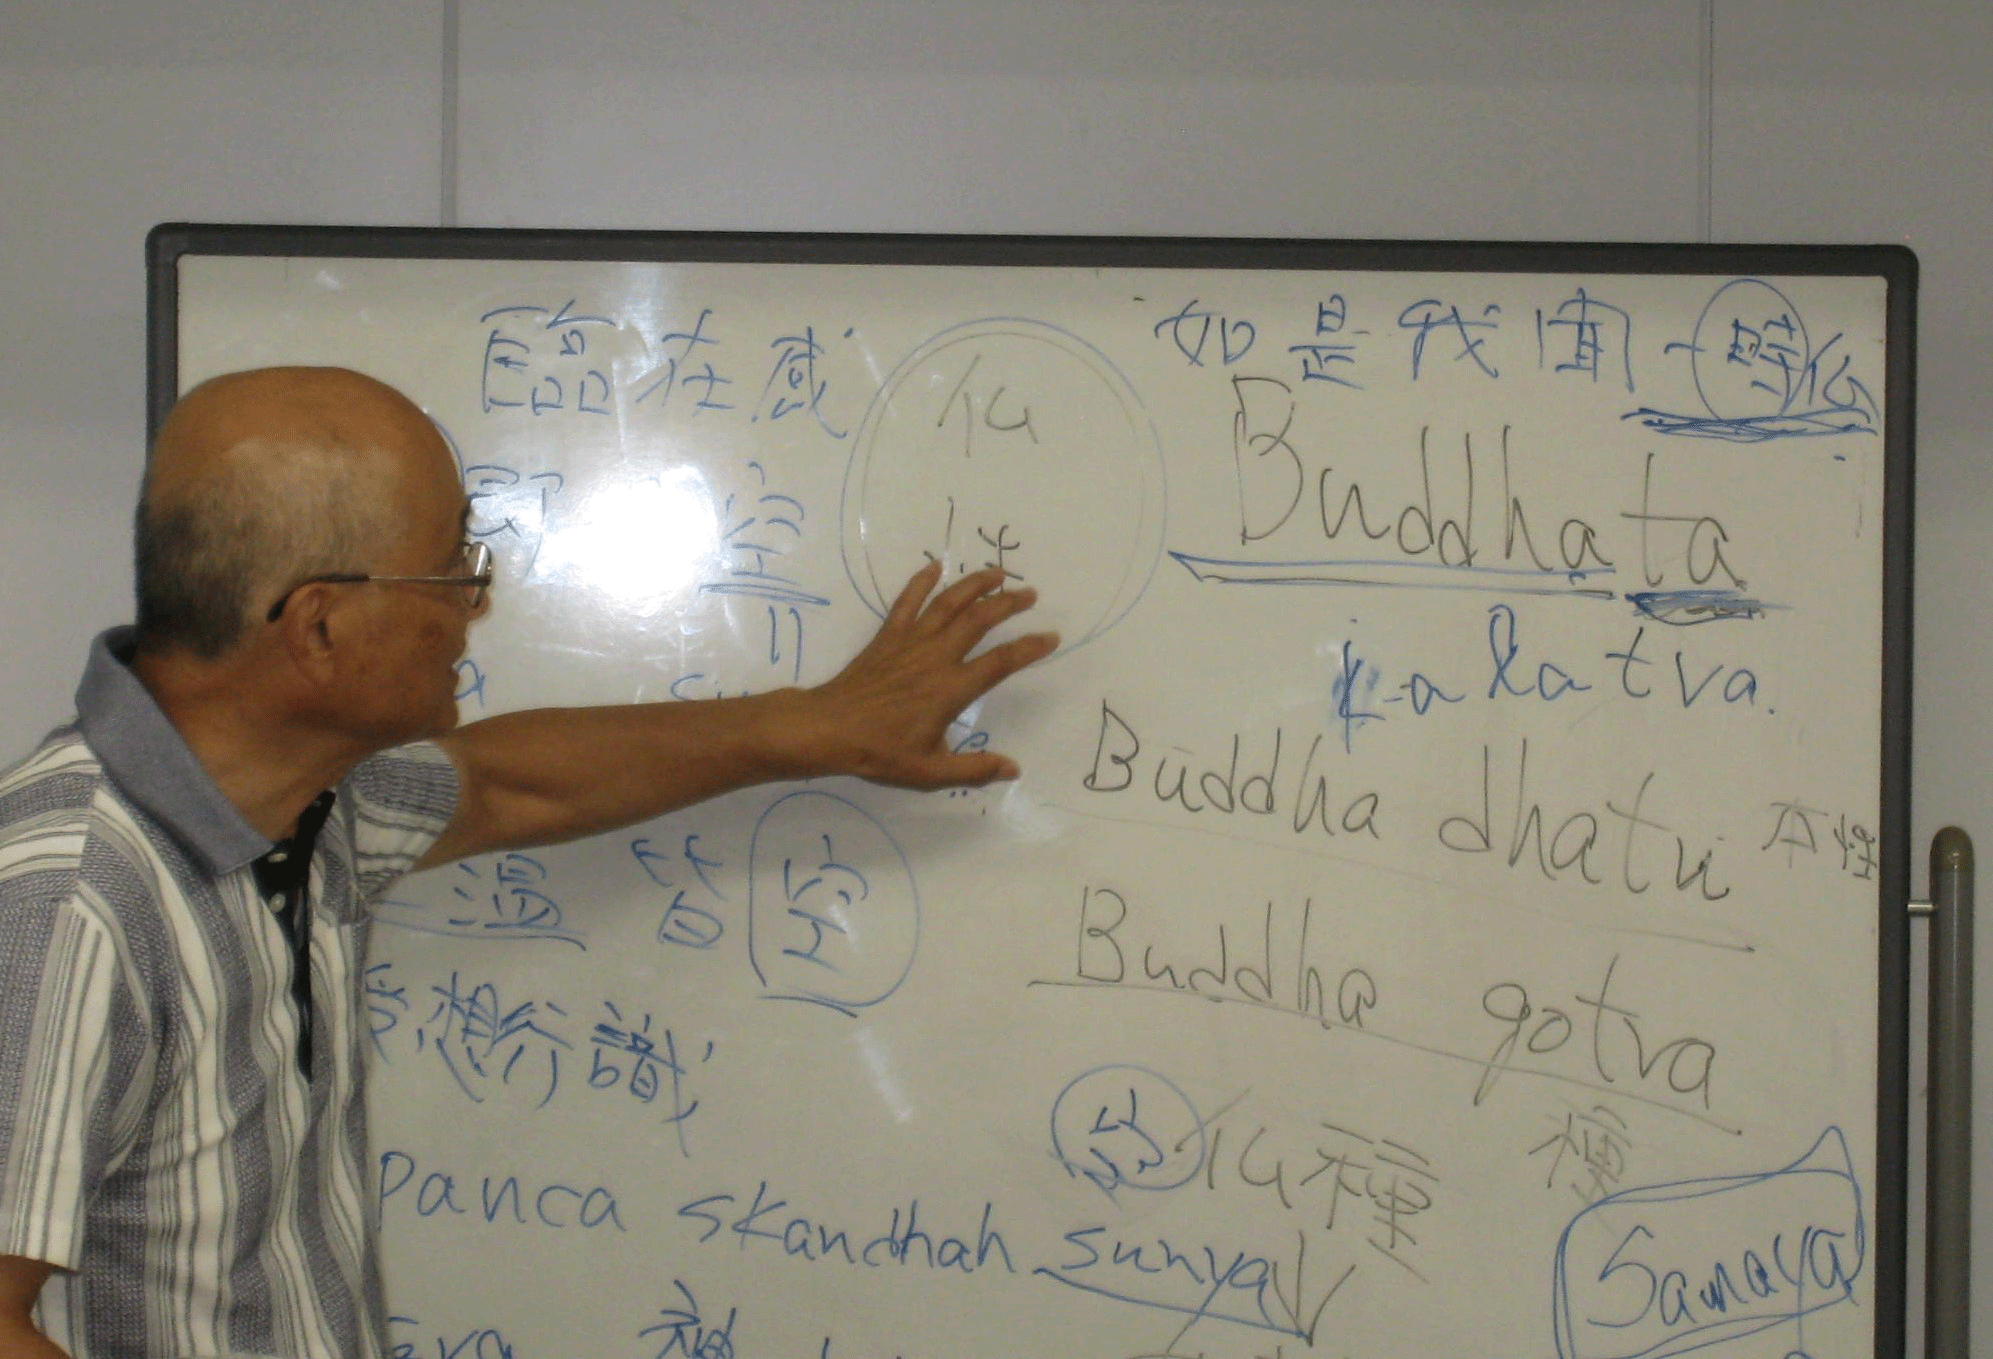 臨在感
如是我聞一時仏
仏
空
性
Buddhata
kakatva.
Buddha dhatu 本性
皆空
Buddha gotra
想行識
空 仏種 種
Panca skandhah sunya
Samaya